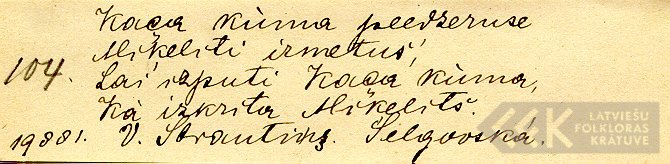 Kaķa kūma peedzeruse
Miķeliti izmetuś,
104. Lai izputi Kaķa kūma,
Kā izkrita Miķelits.
19881. V. Strautiņš. Selgovskā.
LATVIEŠU
FOLKLORAS
KRĀTUVE